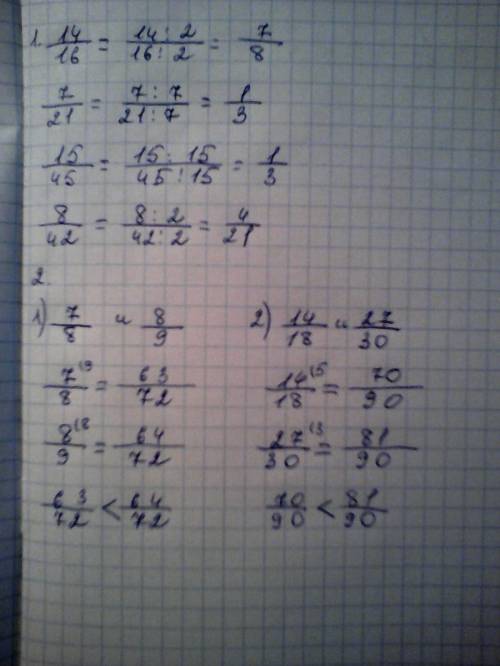 1. 14/16 = 14:2/16:2 = 7/8
7/21 = 7:7/21:7 = 1/3
15/45 = 15:15/45:15 = 1/3
8/42 = 8:2/42:2 = 4/21
2.
1) 7/8 и 8/9
7/8 (9 = 63/72
8/9 (8 = 64/72
63/72 < 64/72
2) 14/18 и 27/30
14/18 (5 = 70/90
27/30 (3 = 81/90
70/90 < 81/90